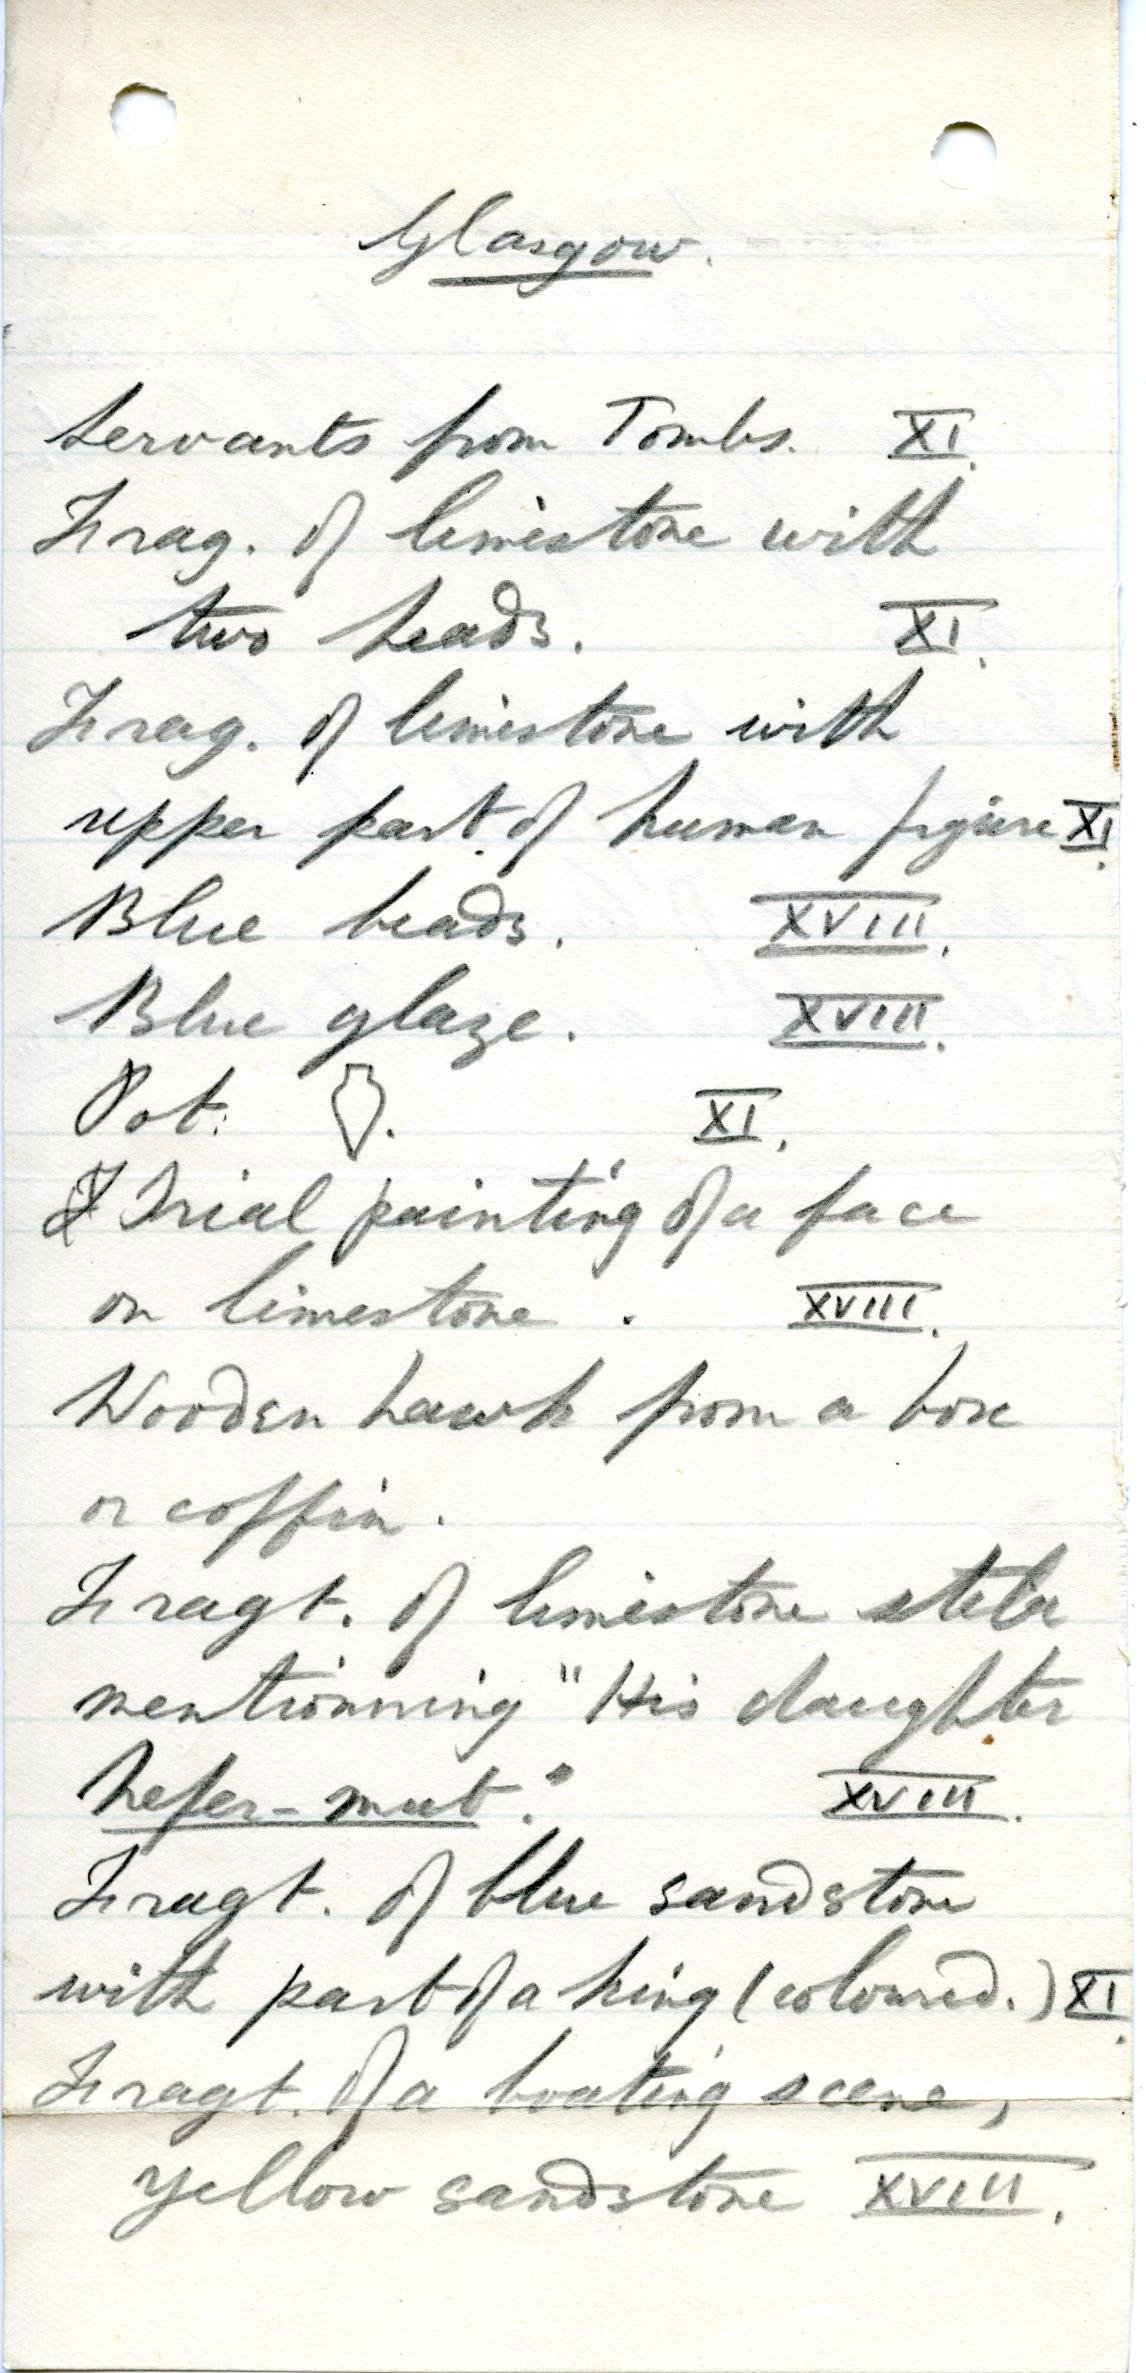 Glasgow.
Servants from Tombs. XI.
Frag. of limestone with
two heads. XI.
Frag. of limestone with
upper part of human figure XI.
Blue beads. XVIII.
Blue glaze. XVIII.
Pot. XI.
Trial painting of a face
on limestone. XVIII.
Wooden hawk from a box
or coffin.
Fragt. of limestone stela
mentionning "His daughter
Nefer-mut." XVIII.
Fragt. of blue sandstone
with part of a king (coloured.) XI.
Fragt. of a boating scene,
yellow sandstone XVIII.